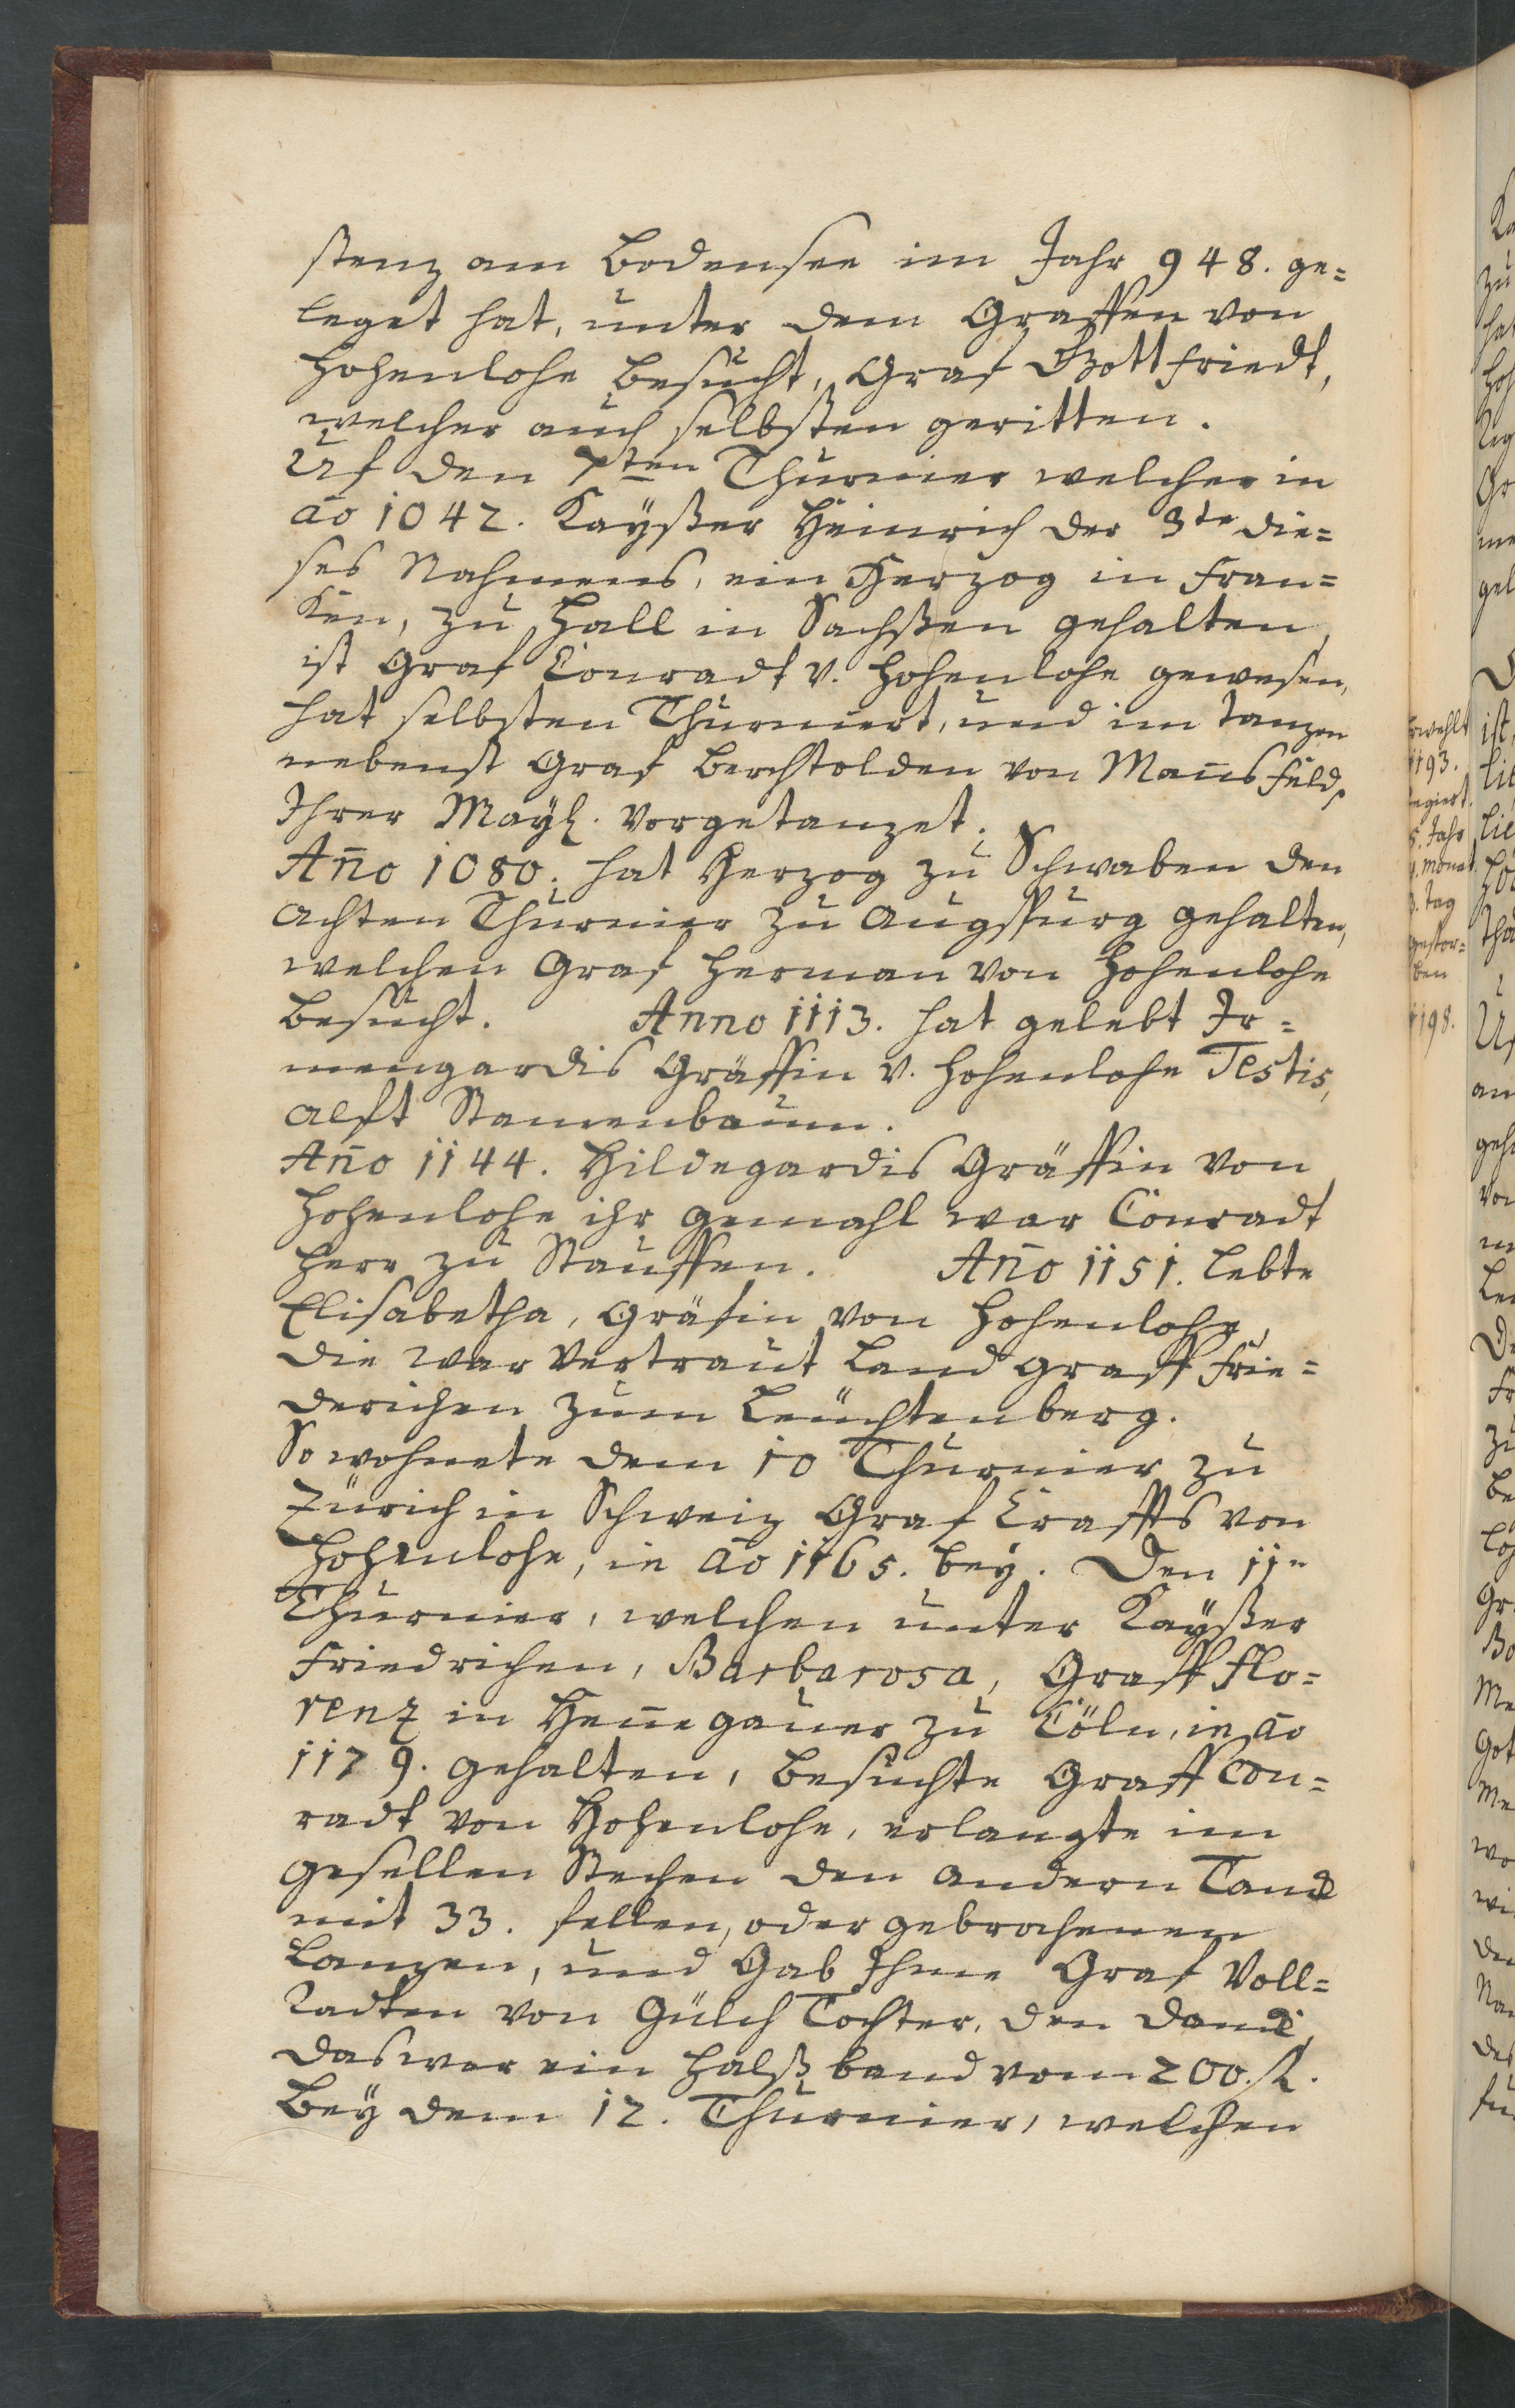 stenz am Bodensee im Jahr 948. ge=
leget hat, unter dem Graffen von
Hohenlohe besucht, Graf Gottfriedt,
welcher auch selbsten geritten.
Uf den 7ten Thurnier welcher in
ao 1042. Kaÿßer Heinrich der 3te die=
ses Nahmens, ein Herzog in Fran=
ken, zu Hall in Sachßen gehalten,
ist Graf Conradt v. Hohenlohe gewesen,
hat selbsten Thurniert, und im tanzen
nebenst Graf Berchtolden von Mannsfeld,
Ihrer Mayt. vorgetanzet.
Ano 1080. hat Herzog zu Schwaben den
achten Thurnier zu Augspurg gehalten,
welchen Graf Herman von Hohenlohe
besucht. Anno 1113. hat gelebt Ir=
mengardis Gräffin v. Hohenlohe Testis,
Stamenbaum.
Ano 1144. Hildegardis Gräffin von
Hohenlohe ihr gemahl war Conradt
Herr zu Stauffen. Ano 1151. lebte
Elisabetha, Gräfin von Hohenlohe,
die war vertraut Land graff Frie=
derichen zum Leuchtenberg.
So wohnete dem 10 Thurnier zu
Zürich in Schweiz Graf Craffts von
Hohenlohe, in ao 1165. beÿ. Den 11n
Thurnier, welchen unter Kaÿßer
Friedrichen, Barbarosa, Graff Flo=
renz in Hennegauer zu Cöln, in ao
1179. gehalten, besuchte Graff Con=
radt von Hohenlohe, erlangte im
gesellen Stechen den andern Danc
mit 33. fellen, oder gebrochenen
Lanzen, und Gab Ihme Graf Voll=
radten von Gülch Tochter, den Danc,
das war ein Halßband vom 200. fl.
Beÿ dem 12. Thurnier, welchen
erwehlt
1193.
regiert.
5. Jahr
monat.
3. tag
gestor=
ben
1198.